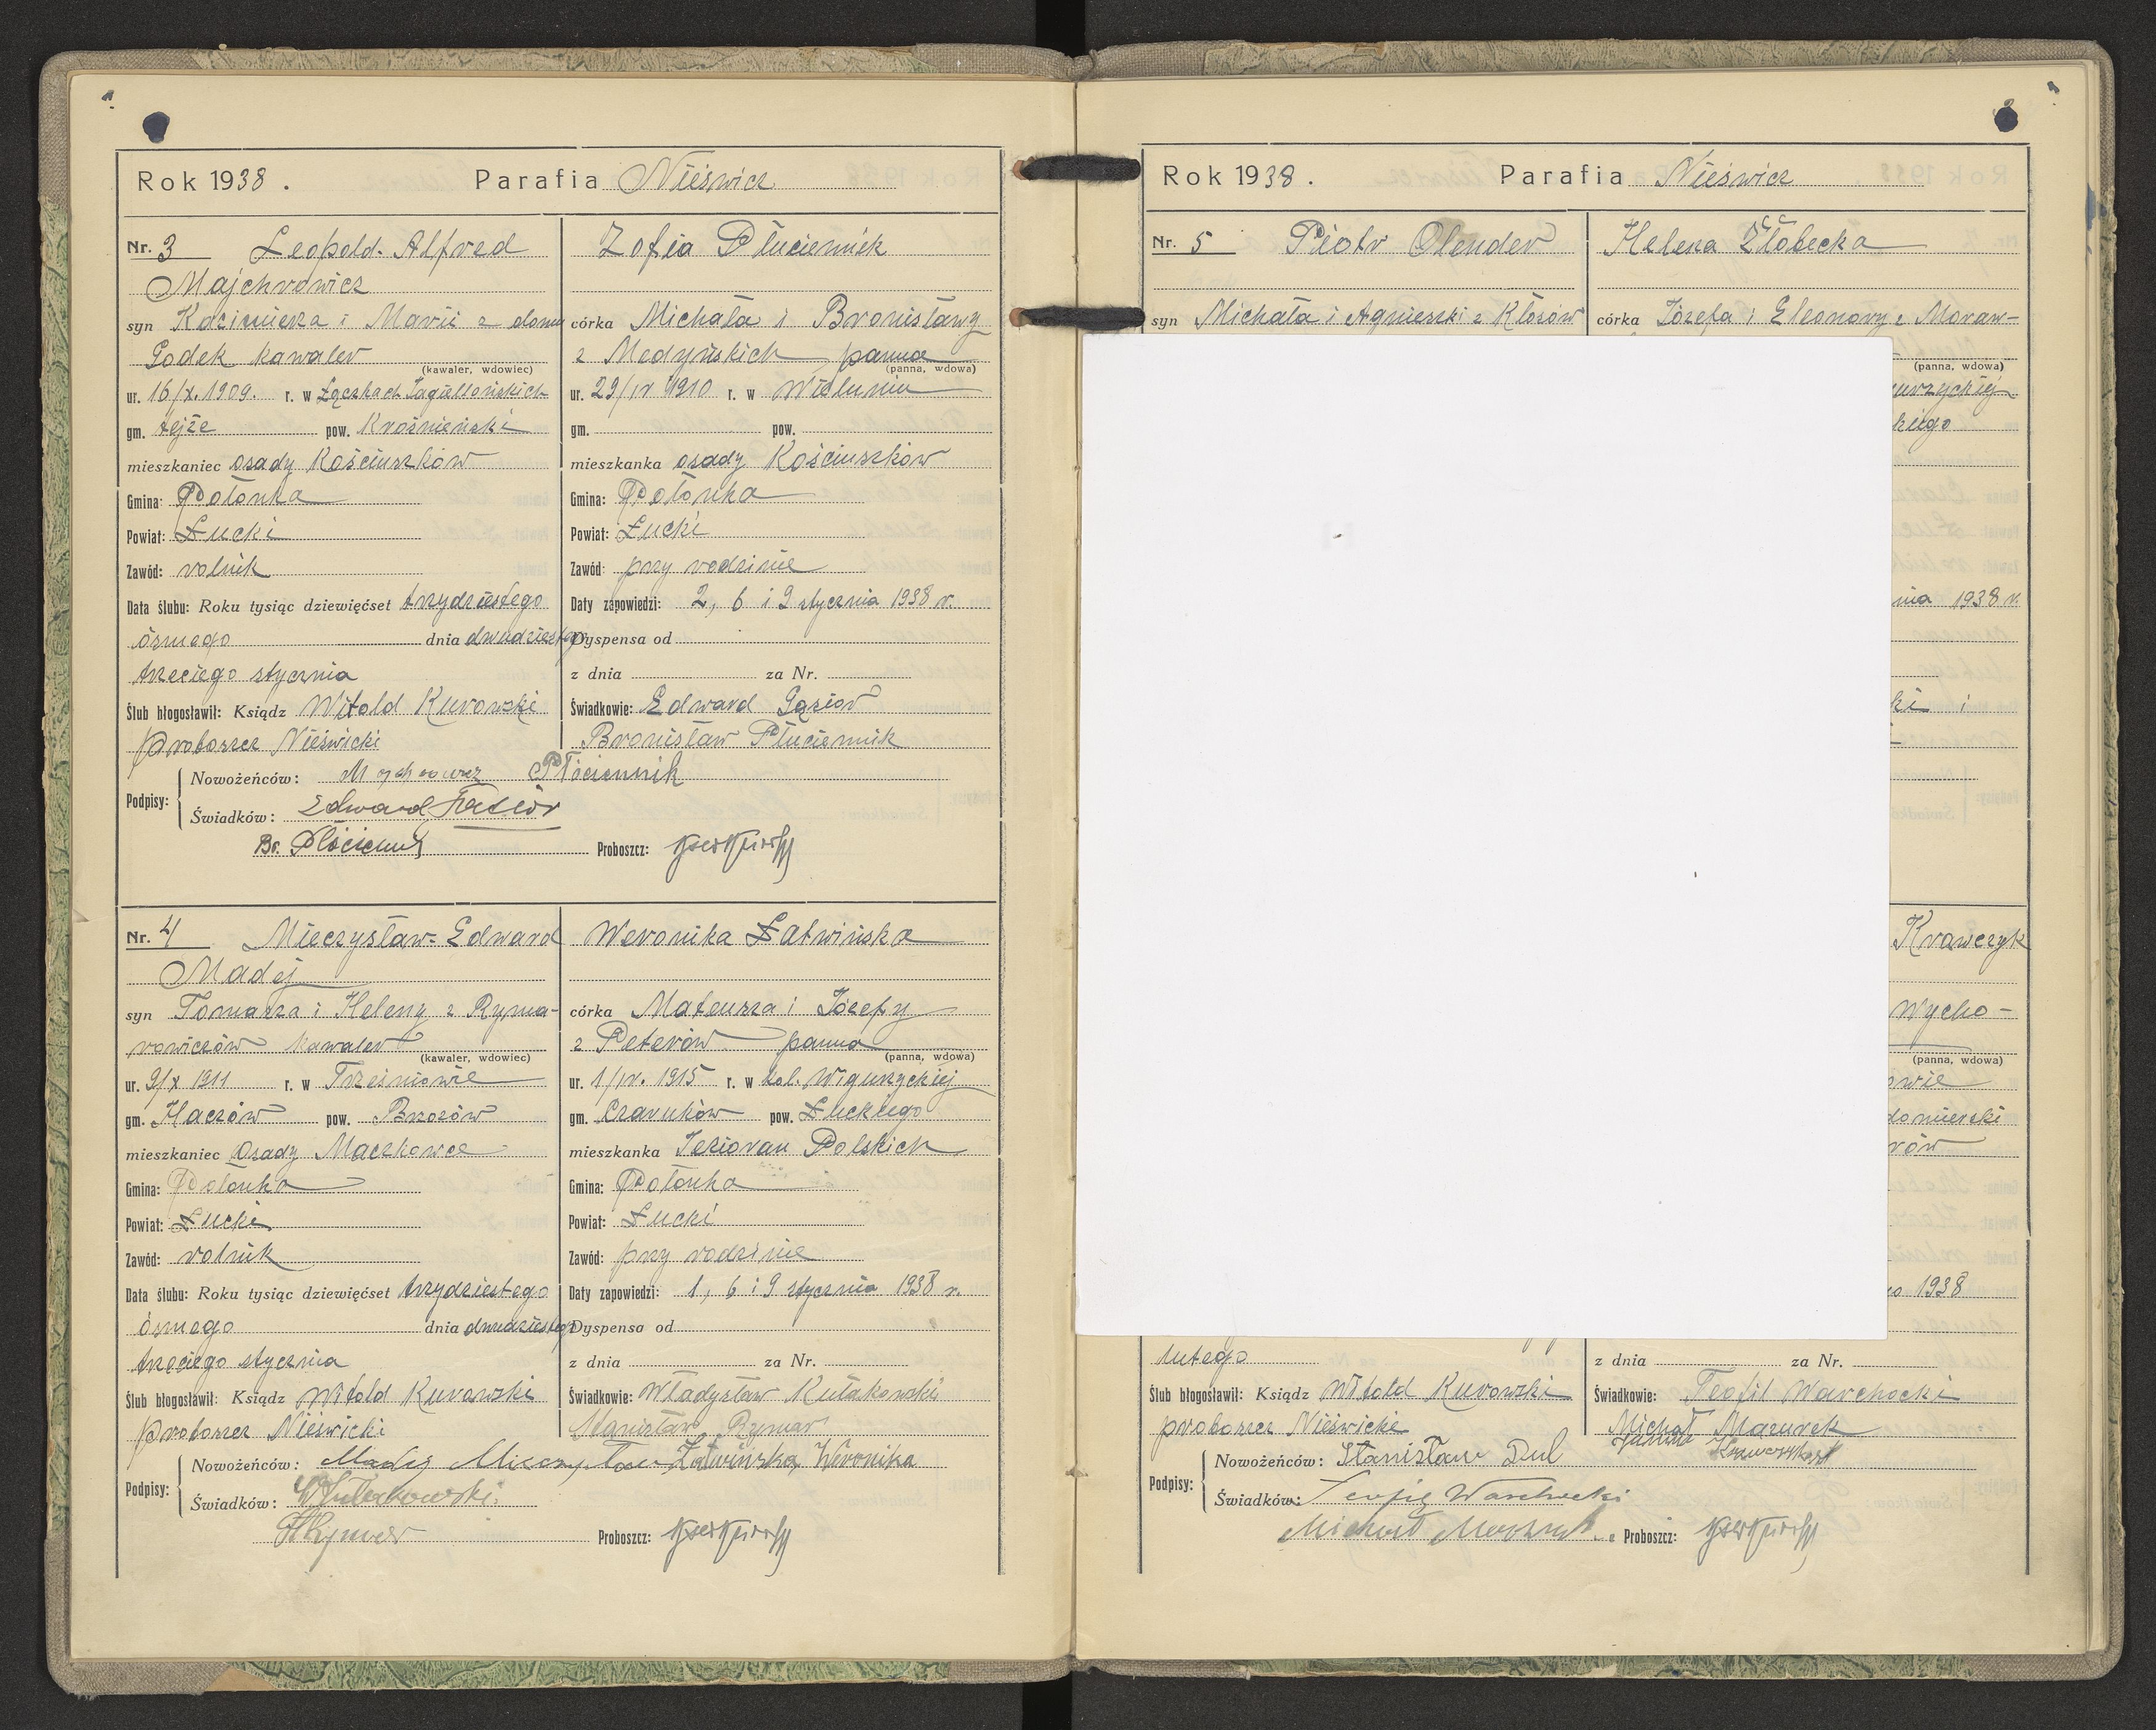 Rok 1938. Parafia Nieświcz
Nr. 3 Leopold-Alfred
Majchrowicz
syn Kazimierza i Marii z domu
Godek kawaler
(kawaler, wdowiec)
ur. 16/X. 1909. r. w Łączkach Jagiellońskich
gm. tejże pow. Krośnieński
mieszkaniec osady Kościuszków
Gmina: Połonka
Powiat: Łucki
Zawód: rolnik
Data ślubu: Roku tysiąc dziewięćset trzydziestego
ósmego dnia dwudziestego
trzeciego stycznia
Ślub błogosławił: Ksiądz Witold Kurowski
proboszcz Nieświcki
Zofia Płuciennik
córka Michała i Bronisławy
z Medyńskich panna
(panna, wdowa)
ur. 29/IV 1910 r. w Wieluniu
gm. pow.
mieszkanka osady Kościuszków
Gmina: Połonka
Powiat: Łucki
Zawód: przy rodzinie
Daty zapowiedzi: 2, 6 i 9 stycznia 1938 r.
Dyspensa od
z dnia za Nr.
Świadkowie: Edward Gąsior
Bronisław Płuciennik
Podpisy:
Nowożeńców: Majchrowicz Płóciennik
Świadków: Edward Gąsior
Br. Płóciennik Proboszcz:
Nr. 4 Mieczysław-Edward
Madej
syn Tomasza i Heleny z Ryma-
rowiczów kawaler
(kawaler, wdowiec)
ur. 9/X 1911 r. w Trześniowie
gm. Haczów pow. Brzozów
mieszkaniec Osady Maczkowce
Gmina: Połonka
Powiat: Łucki
Zawód: rolnik
Data ślubu: Roku tysiąc dziewięćset trzydziestego
ósmego dnia dwudziestego
trzeciego stycznia
Ślub błogosławił: Ksiądz Witold Kurowski
proboszcz Nieświcki
Weronika Łatwińska
córka Mateusza i Józefy
z Peterów panna
(panna, wdowa)
ur. 1/IV. 1915 r. w kol. Wiguryckiej
gm. Czaruków pow. Łuckiego
mieszkanka Jezioran Polskich
Gmina: Połonka
Powiat: Łucki
Zawód: przy rodzinie
Daty zapowiedzi: 1, 6 i 9 stycznia 1938 r.
Dyspensa od
z dnia za Nr.
Świadkowie: Władysław Kułakowski
Stanisław Rymar
Podpisy:
Nowożeńców: Madej Mieczysław Łatwińska Weronika
Świadków: WKułakowski
StRymar Proboszcz:
Rok 1938. Parafia Nieświcz
Nr. 5 Piotr Olender
syn Michała i Agnieszki z Kłosów
Helena Żłobecka
córka Józefa i Eleonory z Moraw-
(panna, wdowa)
uryckiej
kiego
nia 1938 r.
ki i
Krawczyk
Wycho-
(panna, wdowa)
owie
domierski
rów
o 1938
lutego
Ślub błogosławił: Ksiądz Witold Kurowski
proboszcz Nieświcki
z dnia za Nr.
Świadkowie: Teofil Warchocki
Michał Mazurek
Podpisy:
Nowożeńców: Stanisław Dul
Świadków: Teofil Warchocki
Michał Mazurek Proboszcz: